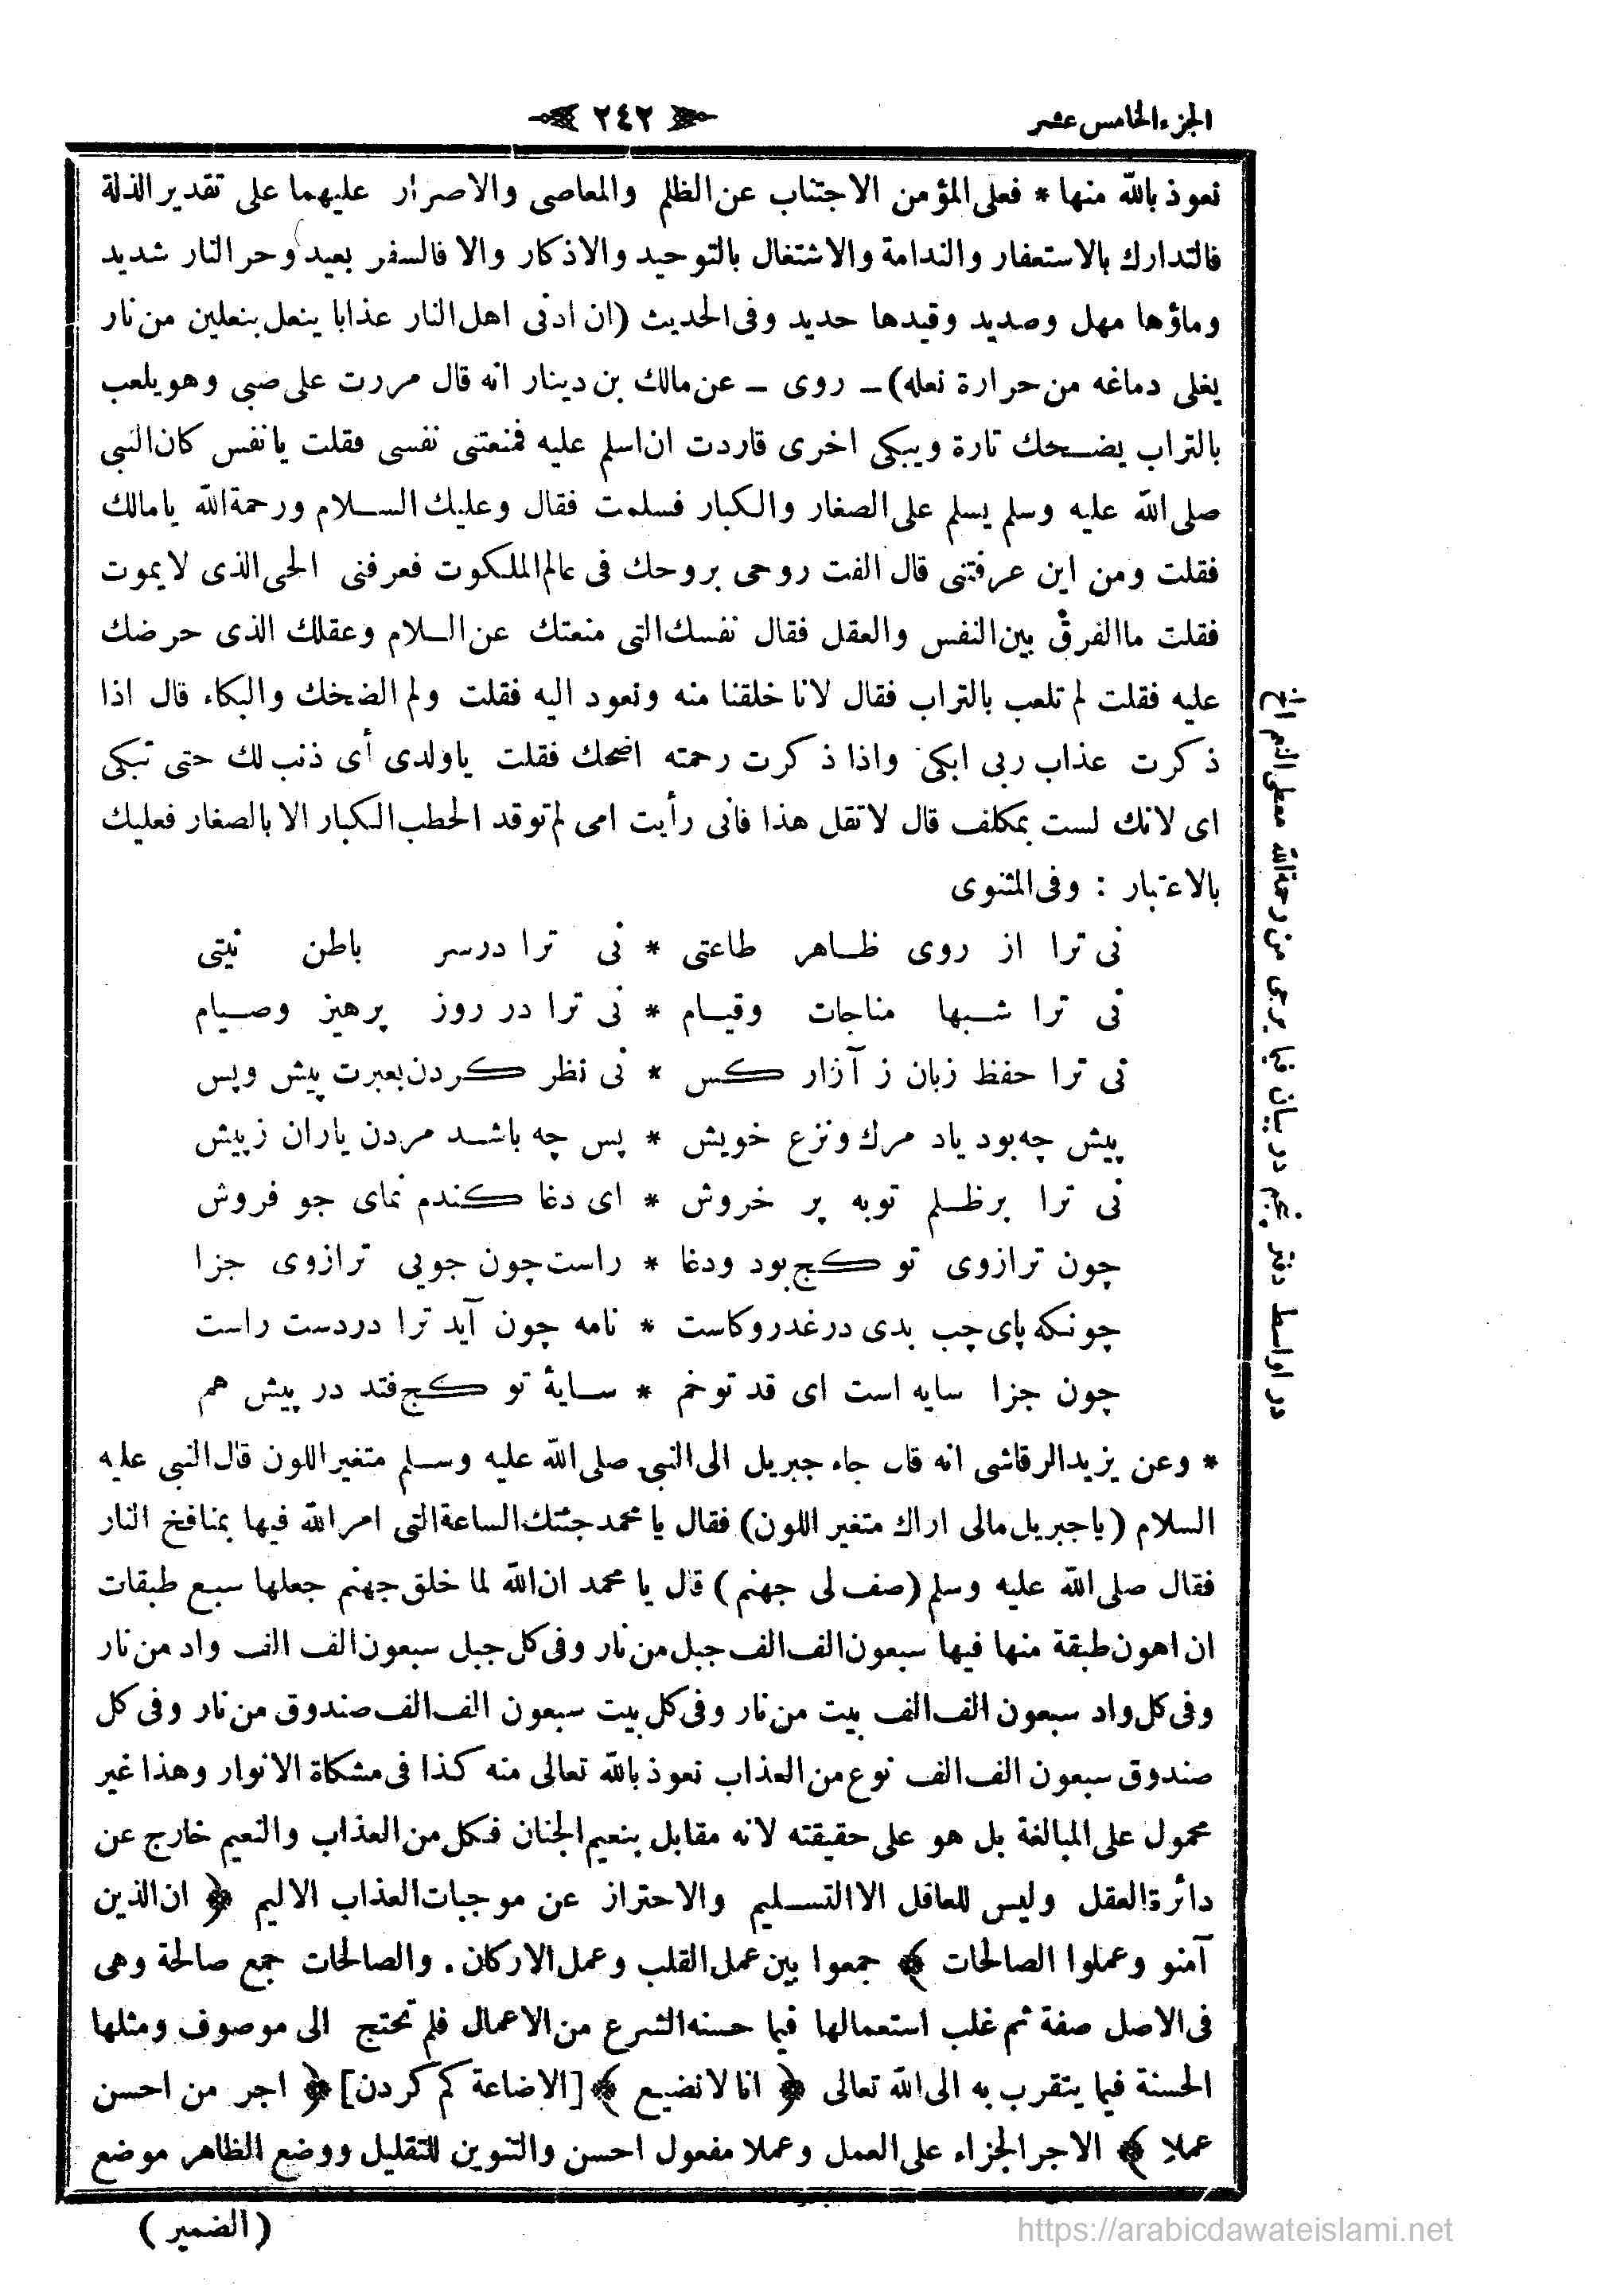 الجزء الخامس عشر
﴿ ٢٤٢ ﴾
نعوذ بالله منها * فعلى المؤمن الاجتناب عن الظلم والمعاصى والاصرار عليهما على تقدير الذلة
فالتدارك بالاستعفار والندامة والاشتغال بالتوحيد والاذكار والا فالسفر بعيد وحر النار شديد
وماؤها مهل وصديد وقيدها حديد وفى الحديث (ان ادنى اهل النار عذابا ينعل بنعلين من نار
يغلى دماغه من حرارة نعله) ـ روى ـ عن مالك بن دينار انه قال مررت على صبى وهو يلعب
بالتراب يضحك تارة ويبكى اخرى قاردت ان اسلم عليه فمنعتنى نفسى فقلت يا نفس كان النبى
صلى الله عليه وسلم يسلم على الصغار والكبار فسلمت فقال وعليك السلام ورحمة الله يا مالك
فقلت ومن اين عرفتنى قال الفت روحى بروحك فى عالم الملكوت فعرفنى الحى الذى لا يموت
فقلت ما الفرق بين النفس والعقل فقال نفسك التى منعتك عن السلام وعقلك الذى حرضك
عليه فقلت لم تلعب بالتراب فقال لانا خلقنا منه ونعود اليه فقلت ولم الضخك والبكاء قال اذا
ذكرت عذاب ربى ابكى واذا ذكرت رحمته اضحك فقلت يا ولدى أى ذنب لك حتى تبكى
اى لانك لست بمكلف قال لا تقل هذا فانى رأيت امى لم توقد الحطب الكبار الا بالصغار فعليك
بالاعتبار : وفى المثنوى
نى ترا از روى ظاهر طاعتى * نى ترا درسر باطن نيتى
نى ترا شبها مناجات وقيام * نى ترا در روز پرهيز وصيام
نى ترا حفظ زبان ز آزار كس * نى نظر كردن بعبرت پيش وپس
پيش چه بود ياد مرك ونزع خويش * پس چه باشد مردن ياران زپيش
نى ترا برظلم توبه پر خروش * اى دغا كندم نماى جو فروش
چون ترازوى تو كج بود ودغا * راست چون جويى ترازوى جزا
چونكه پاى چپ بدى درغدر وكاست * نامه چون آيد ترا دردست راست
چون جزا سايه است اى قد توخم * سايۀ تو كج فتد در پيش هم
* وعن يزيد الرقاشى انه قال جاء جبريل الى النبى صلى الله عليه وسلم متغير اللون قال النبى عليه
السلام (يا جبريل مالى اراك متغير اللون) فقال يا محمد جئتك الساعة التى امر الله فيها بمنافخ النار
فقال صلى الله عليه وسلم (صف لى جهنم) قال يا محمد ان الله لما خلق جهنم جعلها سبع طبقات
ان اهون طبقة منها فيها سبعون الف الف جبل من نار وفى كل جبل سبعون الف الف واد من نار
وفى كل واد سبعون الف الف بيت من نار وفى كل بيت سبعون الف الف صندوق من نار وفى كل
صندوق سبعون الف الف نوع من العذاب نعوذ بالله تعالى منه كذا فى مشكاة الانوار وهذا غير
محمول على المبالغة بل هو على حقيقته لانه مقابل بنعيم الجنان فكل من العذاب والنعيم خارج عن
دائرة العقل وليس للعاقل الا التسليم والاحتراز عن موجبات العذاب الاليم ﴿ ان الذين
آمنو وعملوا الصالحات ﴾ جمعوا بين عمل القلب وعمل الاركان . والصالحات جمع صالحة وهى
فى الاصل صفة ثم غلب استعمالها فيما حسنه الشرع من الاعمال فلم تحتج الى موصوف ومثلها
الحسنة فيما يتقرب به الى الله تعالى ﴿ انا لا نضيع ﴾ [الاضاعة كم كردن] ﴿ اجر من احسن
عملا ﴾ الاجر الجزاء على العمل وعملا مفعول احسن والتنوين للتقليل ووضع الظاهر موضع
( الضمير )
در اواسط دفتر پنجم در بيان فيما يرجى من رحمة الله معطى النعم الخ
https://arabicdawateislami.net